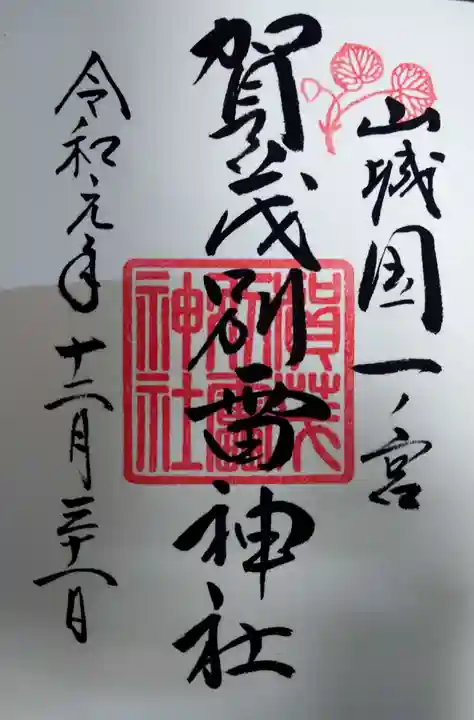 山城国一ノ宮
賀茂別雷神社
賀茂
別雷
神社
令和元年十二月三十一日